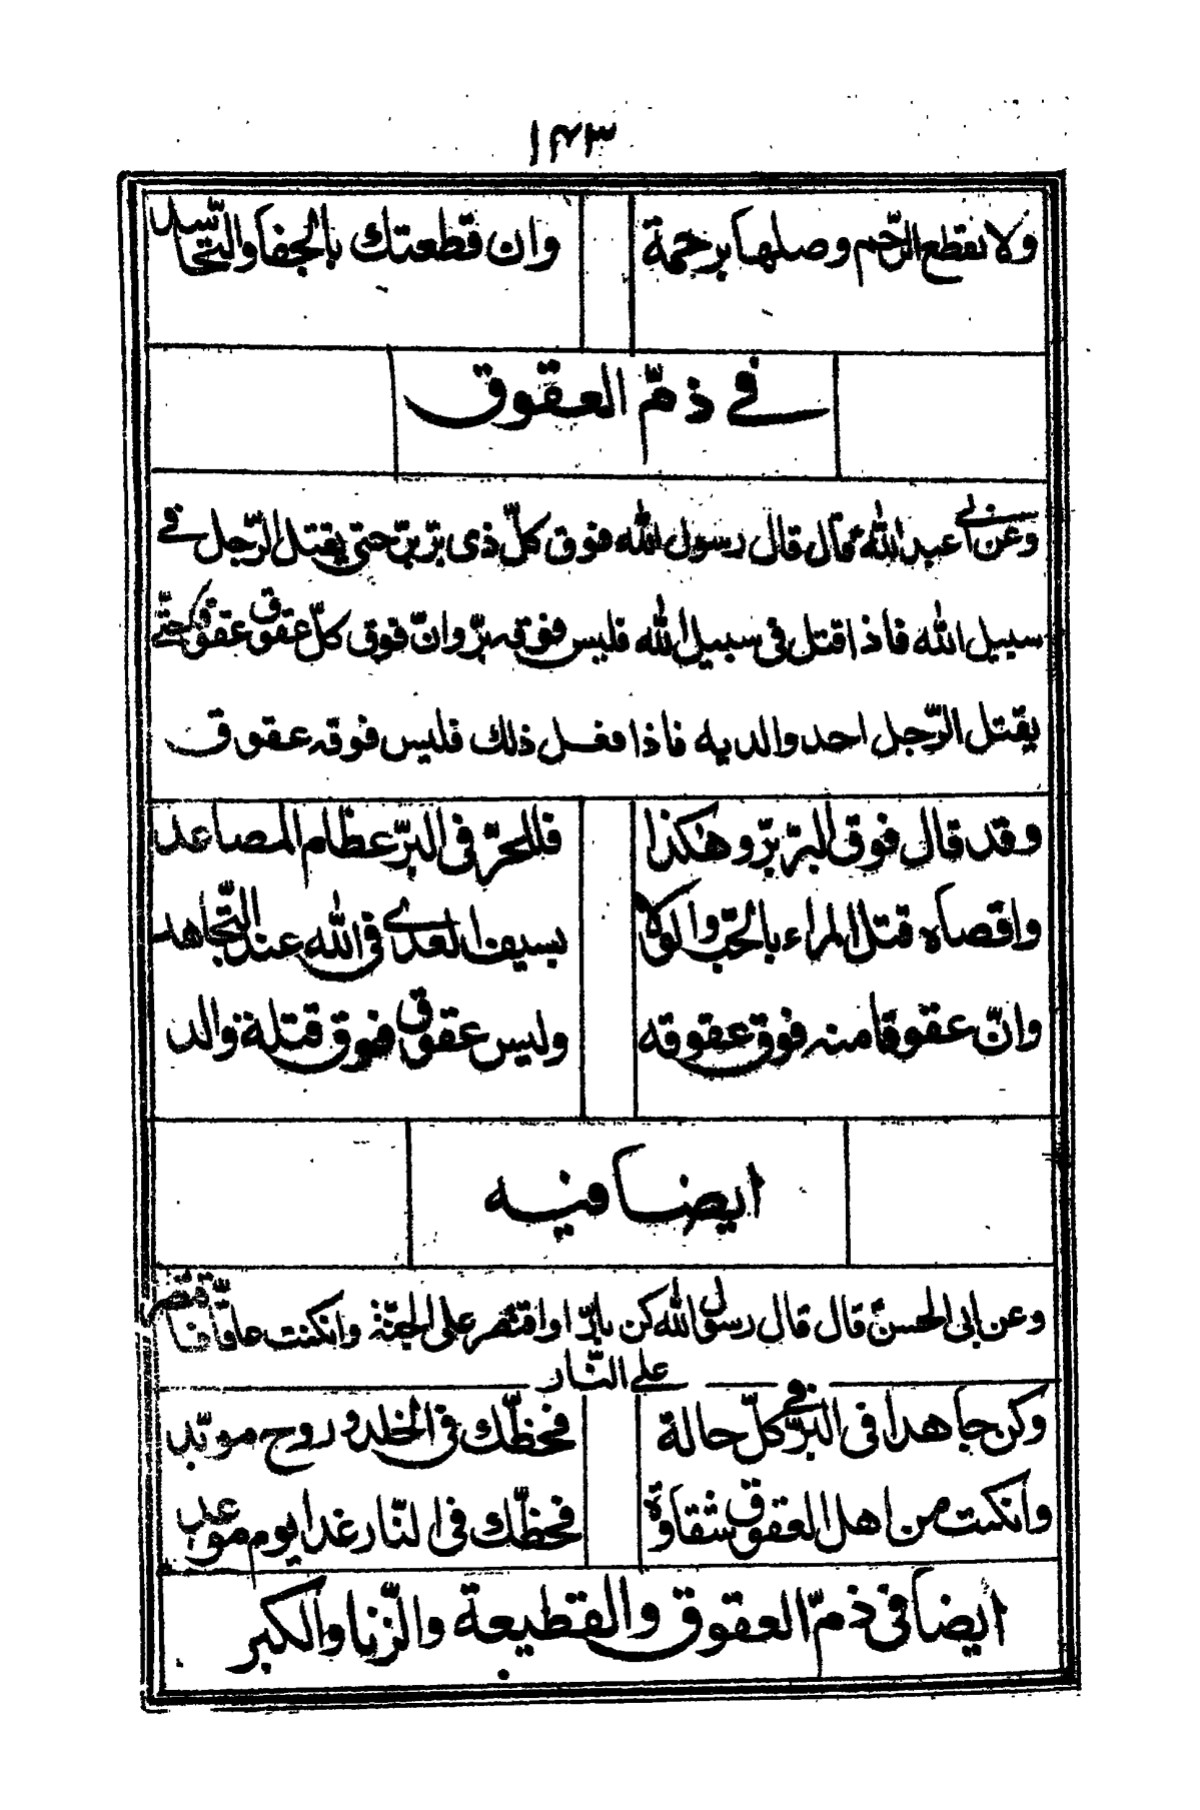 ١٤٣
ولا تقطع الرّحم وصلها برحمة وان قطعتك بالجفا والتّحاسد
في ذمّ العقوق
وعن أبي عبد الله ع قال قال رسول الله فوق كلّ ذى برّ برّ حتى يقتل الرّجل في
سبيل الله فاذا قتل في سبيل الله فليس فوقه برّ وانّ فوق كلّ عقوق عقوق حتّى
يقتل الرّجل احد والديه فاذا فعل ذلك فليس فوقه عقوق
وقد قال فوق البرّ برّ وهكذا فللحرّ في البرّ عظام المصاعد
واقصاه قتل المراء بالحبّ والولا بسيف العدى في الله عند التّجاهد
وانّ عقوقا منه فوق عقوقه وليس عقوق فوق قتلة والد
ايضا فيه
وعن ابى الحسن قال قال رسول الله كن بارّا واقتصر على الجنّة وانكنت عاقّا فاقتصر
على النّار
وكن جاهدا في البرّ في كلّ حالة فحظّك في الخلد وروح موبّد
وانكنت من اهل العقوق شقاوة فحظّك في النّار غدا يوم موعد
ايضا في ذمّ العقوق والقطيعة والزّنا والكبر